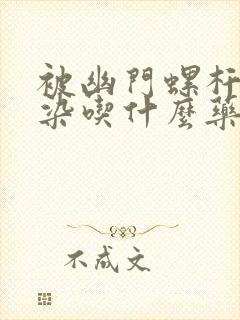 被幽門螺杆
染喫什麼藥
不成文